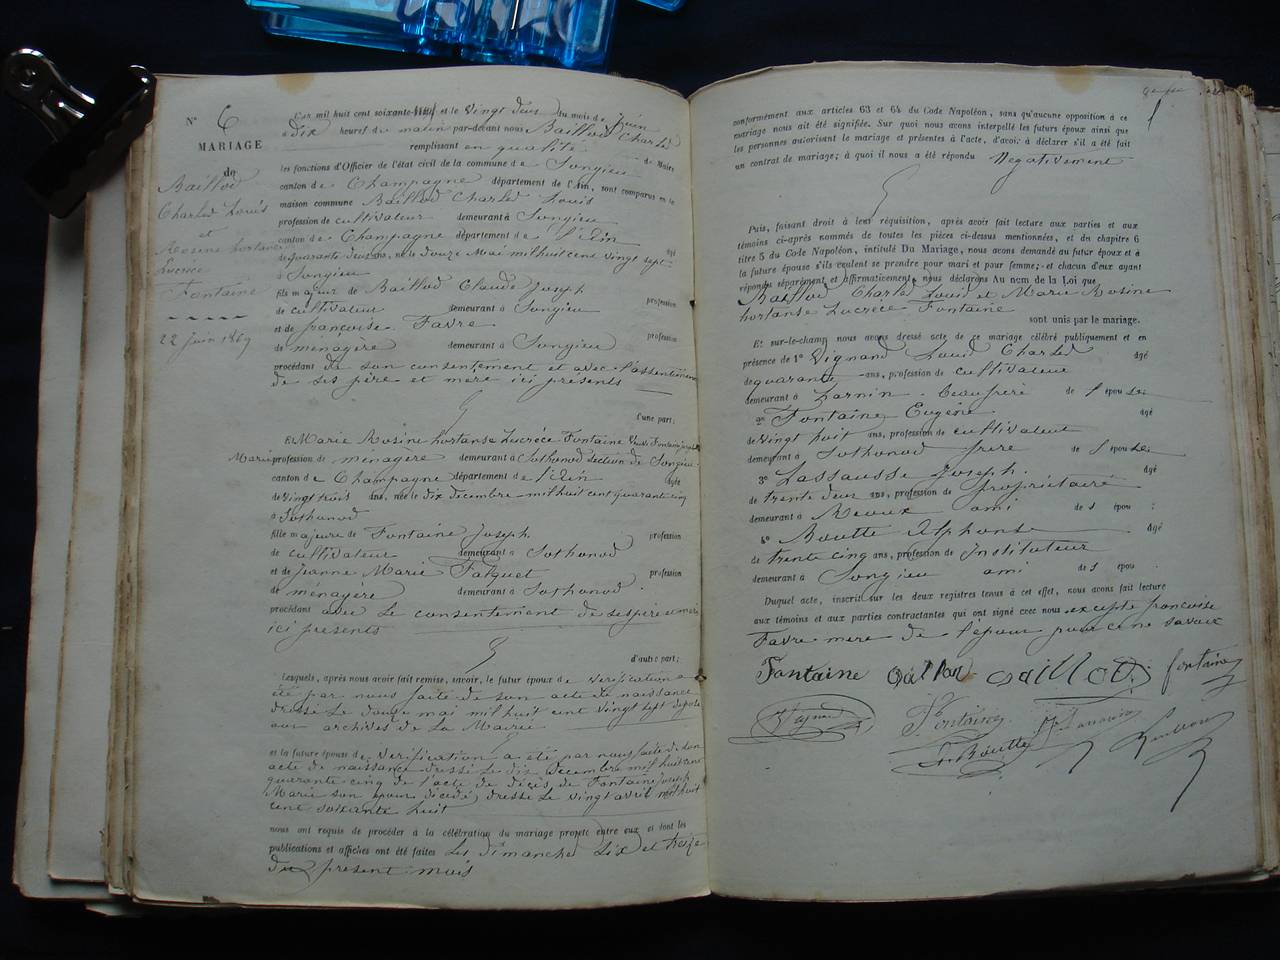 N° 6
MARIAGE
de
Baillod
Charles Louis
et
Rosine hortanse
Lucrèce
Fontaine
22 juin 1869
L'an mil huit cent soixante et le vingt deux du mois de Juin
à dix heures du matin par-devant nous Baillod Charles
remplissant en qualité de Maire
les fonctions d'Officier de l'état civil de la commune de Songieu
canton de Champagne département de l'Ain, sont comparus en la
maison commune Baillod Charles Louis
profession de cultivateur demeurant à Songieu
canton de Champagne département de l'Ain âgé
de quarante deux ans, né le douze Mai mil huit cent vingt sept
à Songieu
fils majeur de Baillod Claude Joseph profession
de cultivateur demeurant à Songieu
et de françoise Favre profession
de ménagère demeurant à Songieu
procédant de son consentement et avec l'assentiment
de ses père et mere ici présents
d'une part;
Et Marie Rosine hortanse Lucrèce Fontaine veuve Fontaine joseph
Marie profession de ménagère demeurant à Sothonod section de Songieu
canton de Champagne département de l'Ain âgée
de vingt trois ans, née le dix décembre mil huit cent quarante cinq
à Sothonod
fille majeure de Fontaine Joseph profession
de cultivateur demeurant à Sothonod
et de Jeanne Marie Falquet profession
de ménagère demeurant à Sothonod
procédant avec le consentement de ses père et mere
ici présents
d'autre part;
Lesquels, après nous avoir fait remise, savoir, le futur époux de vérification a
été par nous faite de son acte de naissance
dressé le douze mai mil huit cent vingt sept déposé
aux archives de la Mairie
et la future épouse de vérification a été par nous faite de son
acte de naissance dressé le dix décembre mil huit cent
quarante cinq de l'acte de décès de Fontaine joseph
Marie son époux décédé, dressé le vingt avril mil huit
cent soixante huit
nous ont requis de procéder à la célébration du mariage projeté entre eux et dont les
publications et affiches ont été faites les dimanches six et treize
du présent mois
conformément aux articles 63 et 64 du Code Napoléon, sans qu'aucune opposition à ce
mariage nous ait été signifiée. Sur quoi nous avons interpellé les futurs époux ainsi que
les personnes autorisant le mariage et présentes à l'acte, d'avoir à déclarer s'il a été fait
un contrat de mariage; à quoi il nous a été répondu Negativement
Puis, faisant droit à leur réquisition, après avoir fait lecture aux parties et aux
témoins ci-après nommés de toutes les pièces ci-dessus mentionnées, et du chapitre 6
titre 5 du Code Napoléon, intitulé Du Mariage, nous avons demandé au futur époux et à
la future épouse s'ils veulent se prendre pour mari et pour femme; et chacun d'eux ayant
répondu séparément et affirmativement, nous déclarons Au nom de la Loi que
Baillod Charles Louis et Marie Rosine
hortanse Lucrèce Fontaine sont unis par le mariage.
Et sur-le-champ nous avons dressé acte de ce mariage célébré publiquement et en
présence de 1° Vignand Louis Charles âgé
de quarante ans, profession de cultivateur
demeurant à beaufrère de l'épouse
2° Fontaine Eugène âgé
de vingt huit ans, profession de cultivateur
demeurant à Sothonod frère de l'épouse
3° Lassausse Joseph âgé
de trente deux ans, profession de propriétaire
demeurant à ami de s épou ;
4° Boutte Alphonse âgé
de trente cinq ans, profession de Instituteur
demeurant à Songieu ami de s épou
Duquel acte, inscrit sur les deux registres tenus à cet effet, nous avons fait lecture
aux témoins et aux parties contractantes qui ont signé avec nous excepté françoise
Favre mere de l'époux pour ne savoir
Fontaine baillod baillod fontaine
Fontaine
A. Boutte